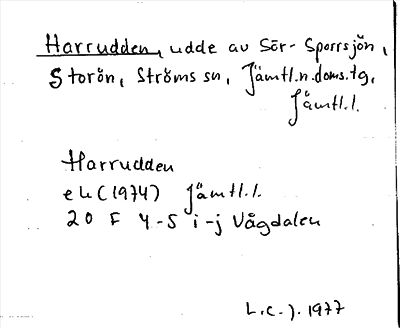 Harrudden, udde av Sör-Sporrsjön,
Storön, Ströms sn, Jämtl.n.doms.tg,
Jämtl.l.
Harrudden
ek (1974) Jämtl.l.
20 F 4-5 i-j Vågdalen
L.C.J. 1977